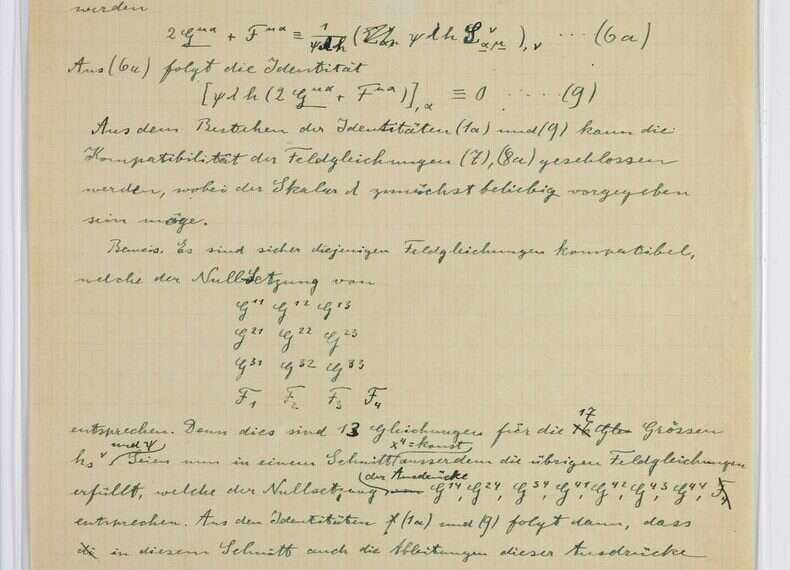 werden
2 G^μα + F^μα ≡ 1/ψλh (ψ λ h S^ν_αμ),ν ··· (6a)
Aus (6a) folgt die Identität
[ψ λ h (2 G^μα + F^μα)],α ≡ 0 ····· (9)
Aus dem Bestehen der Identitäten (1a) und (9) kann die
Kompatibilität der Feldgleichungen (7), (8a) geschlossen
werden, wobei der Skalar λ zunächst beliebig vorgegeben
sein möge.
Beweis. Es sind sicher diejenigen Feldgleichungen kompatibel,
welche der Nullsetzung von
G^11 G^12 G^13
G^21 G^22 G^23
G^31 G^32 G^33
F_1 F_2 F_3 F_4
entsprechen. Denn dies sind 13 Gleichungen für die 17 Grössen
h_s^ν und ψ Seien nun in einem Schnitt x^4 = konst ausserdem die übrigen Feldgleichungen
erfüllt, welche der Nullsetzung der Ausdrücke G^14, G^24, G^34, G^41, G^42, G^43, G^44,
entsprechen. Aus den Identitäten (1a) und (9) folgt dann, dass
in diesem Schnitt auch die Ableitungen dieser Ausdrücke